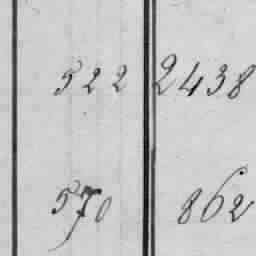 522 2438
570 862